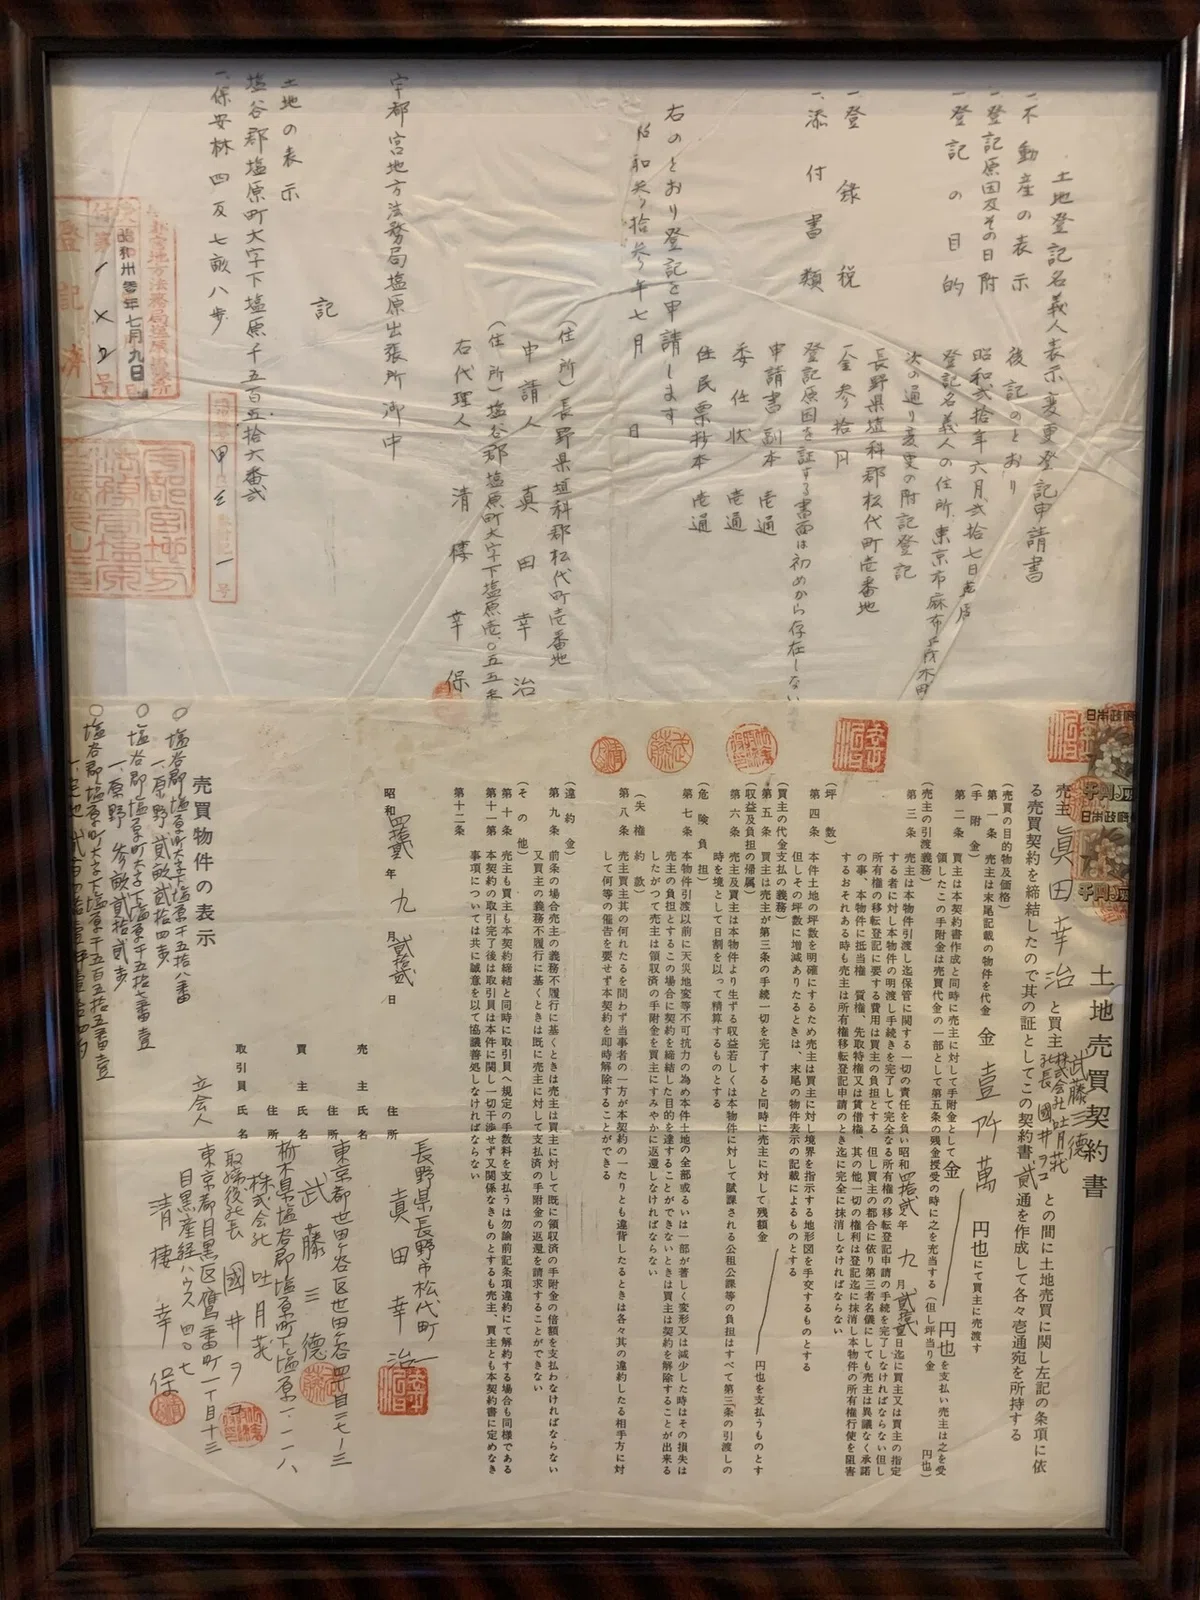 土地登記名義人表示変更登記申請書
一、不動産の表示 後記のとおり
一、登記原因及その日附 昭和弐拾年六月弐拾七日
一、登記の目的 登記名義人の住所 東京市麻布
次の通り変更の附記登記
長野県埴科郡松代町壱番地
一、登録税 金参拾円
一、添付書類 登記原因を証する書面は初めから存在しない
申請書副本 壱通
委任状 壱通
住民票抄本 壱通
右のとおり登記を申請します
昭和 拾参年七月 日
(住所)長野県埴科郡松代町壱番地
申請人 真田幸治
(住所)塩谷郡塩原町大字下塩原
右代理人 清棲幸保
宇都宮地方法務局塩原出張所 御中
記
土地の表示
塩谷郡塩原町大字下塩原千五百五拾六番弐
一、保安林 四反七畝八歩
登記済
土地売買契約書
売主 眞田幸治 と買主 武藤三德 株式会社吐月荘 社長 國井 との間に土地売買に関し左記の条項に依
る売買契約を締結したので其の証としてこの契約書 貳 通を作成して各々壱通宛を所持する
(売買の目的物及価格)
第一条 売主は末尾記載の物件を代金 金 萬 円也にて買主に売渡す
(手附金)
第二条 買主は本契約書作成と同時に売主に対して手附金として金 円也を支払い売主は之を受
領したこの手附金は売買代金の一部として第五条の残金授受の時に之を充当する(但し坪当り金 円也)
(売主の引渡義務)
第三条 売主は本物件引渡し迄保管に関する一切の責任を負い昭和四拾貳年九月 日迄に買主又は買主の指定
する者に対し本物件の明渡し手続きを完了して完全なる所有権の移転登記申請の手続を完了しなければならない但し
所有権の移転登記に要する費用は買主の負担とする 但し買主の都合に依り第三者名儀にしても売主は異議なく承諾
の事、本物件に抵当権 質権、先取特権又は賃借権、其の他一切の権利は登記迄に抹消し本物件の所有権行使を阻害
するおそれある時も売主は所有権移転登記申請のとき迄に完全に抹消しなければならない
(坪数)
第四条 本件土地の坪数を明確にするため売主は買主に対し境界を指示する地形図を手交するものとする
但しその坪数に増減ありたるときは、末尾の物件表示の記載によるものとする
(買主の代金支払の義務)
第五条 買主は売主が第三条の手続一切を完了すると同時に売主に対して残額金 円也を支払うものとす
(収益及負担の帰属)
第六条 売主及買主は本物件より生ずる収益若しくは本物件に対して賦課される公租公課等の負担はすべて第三条の引渡しの
時を境として日割を以って精算するものとする
(危険負担)
第七条 本物件引渡以前に天災地変等不可抗力の為め本件土地の全部或るいは一部が著しく変形又は減少した時はその損失は
売主の負担とするこの場合に契約を締結した目的を達することができないときは買主は契約を解除することが出来る
したがつて売主は領収済の手附金を買主にすみやかに返還しなければならない
(失権約款)
第八条 売主買主其の何れたるを問わず当事者の一方が本契約の一たりとも違背したるときは各々其の違約したる相手方に対
して何等の催告を要せず本契約を即時解除することができる
(違約金)
第九条 前条の場合売主の義務不履行に基くときは売主は買主に対して既に領収済の手附金の倍額を支払わなければならない
又買主の義務不履行に基くときは既に売主に対して支払済の手附金の返還を請求することができない
(その他)
第十条 売主も買主も本契約締結と同時に取引員へ規定の手数料を支払うは勿論前記条項違約にて解約する場合も同様である
第十一条 本契約の取引完了後は取引員は本件に関し一切干渉せず又関係なきものとするも売主、買主とも本契約書に定めなき
事項については共に誠意を以て協議善処しなければならない
第十二条
昭和四拾貳年九月貳拾貳日
売主 住所 長野県長野市松代町一
氏名 眞田幸治
買主 住所 東京都世田谷区世田谷四丁目三七ノ三
氏名 武藤三德
取引員 住所 栃木県塩谷郡塩原町下塩原一一一八
氏名 株式会社吐月荘
取締役社長 國井
立会人 東京都目黒区鷹番町一丁目十三
目黒産経ハウス四〇七
清棲幸保
売買物件の表示
○塩谷郡塩原町大字下塩原千五拾八番
一、原野 貳畝貳拾四歩
○塩谷郡塩原町大字下塩原千五拾七番壹
一、原野 参畝貳拾貳歩
○塩谷郡塩原町大字下塩原千五百五拾五番壹